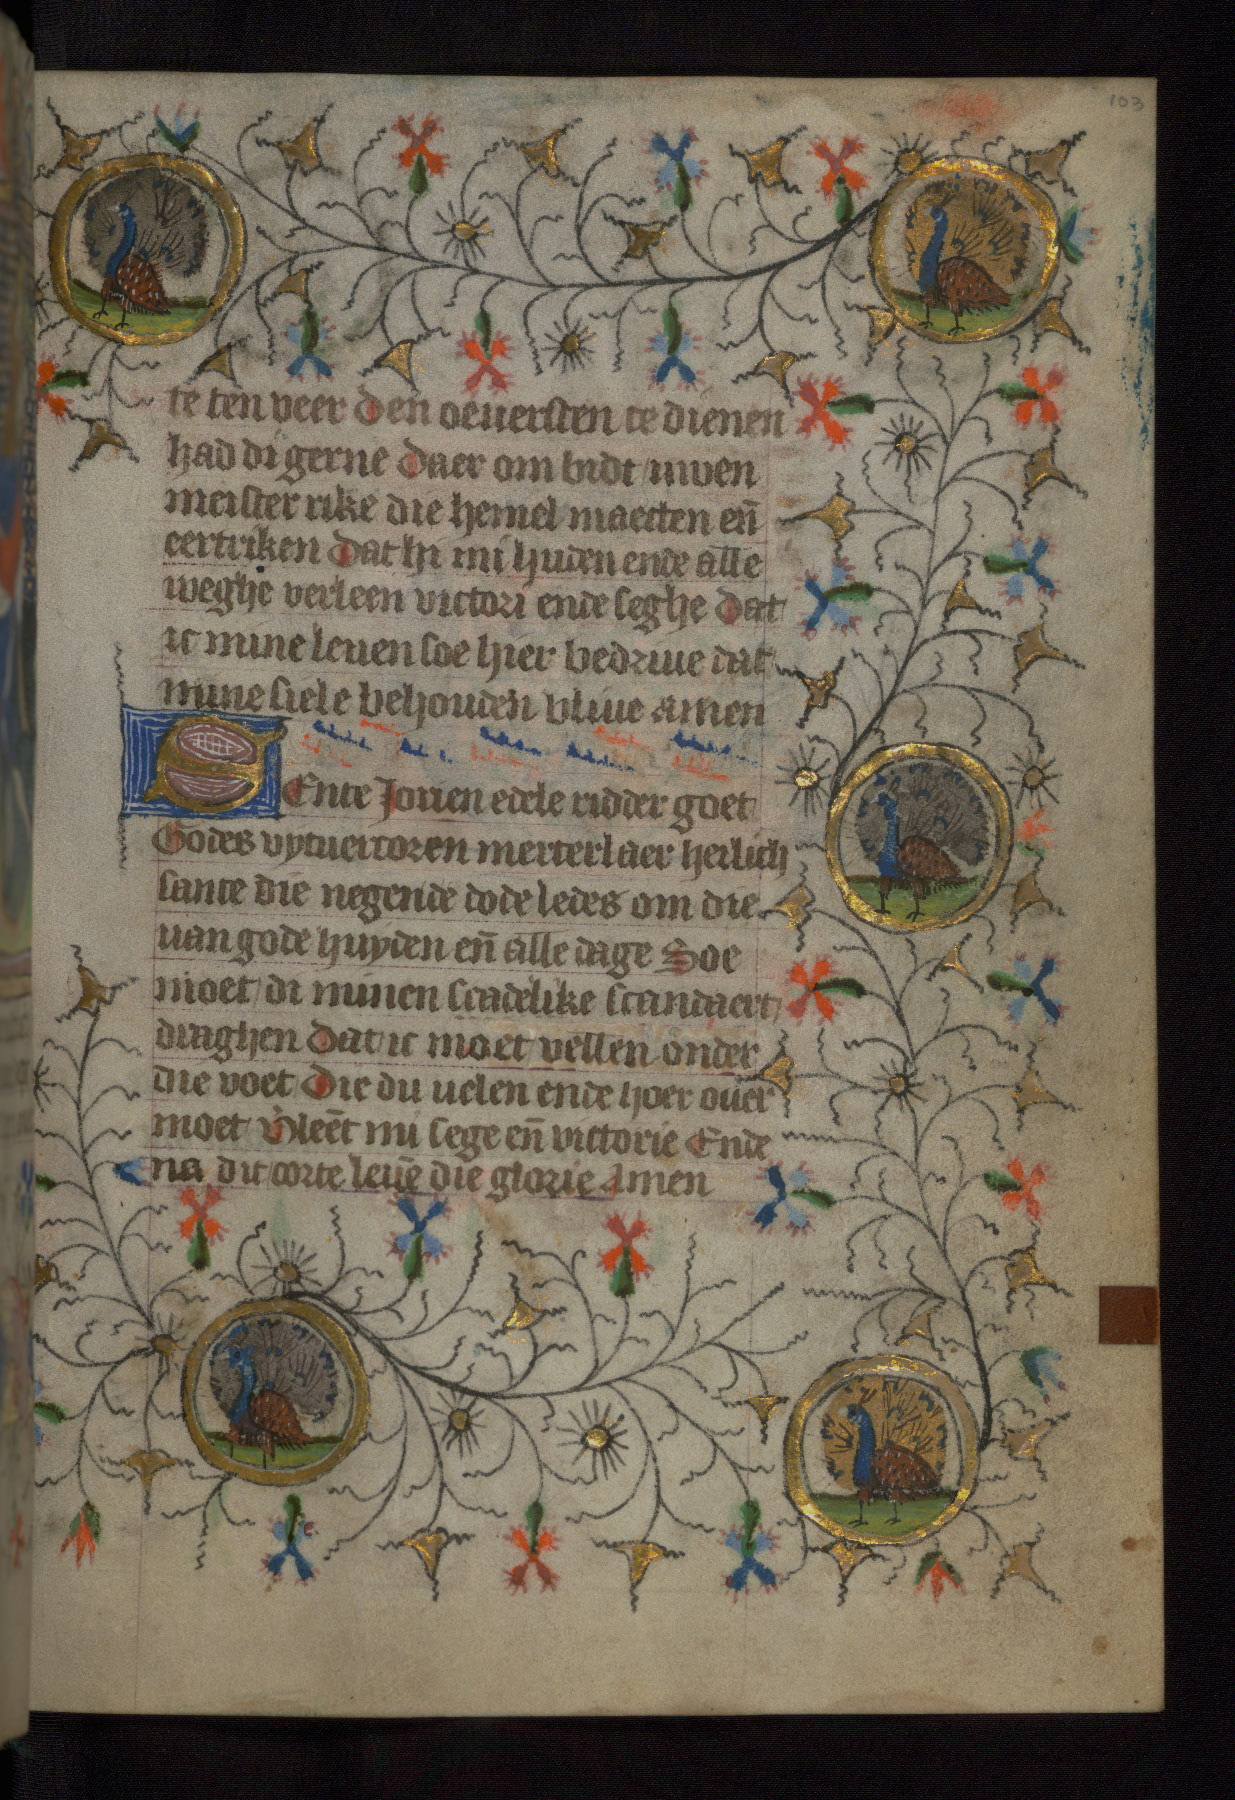 103
te ten veer den oeuersten te dienen
had di gerne daer om bidt
meister rike die hemel maecten eñ
eertriken dat hi mi huden ende alle
weghe verleen victori ende seghe dat
ic mine leuen soe hier bedriue dat
mine siele behouden bliue amen
SEnte Jorien edele ridder goet
Godes vytuercoren merterlaer heilich
sante die negende dode ledes om die
uan gode huyden eñ alle dage Soe
moet di minen scadelike scandaert
draghen dat ic moet vellen onder
die voet die du uelen ende hoer ou̅er
moet v̕leēt mi sege eñ victorie Ende
na dit corte leuē die glorie Amen